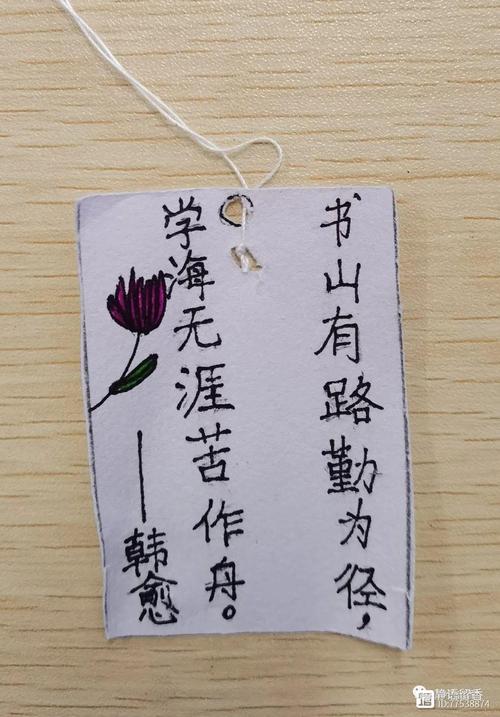 书山有路勤为径，
学海无涯苦作舟。
——韩愈
静语留香
ID:77538874